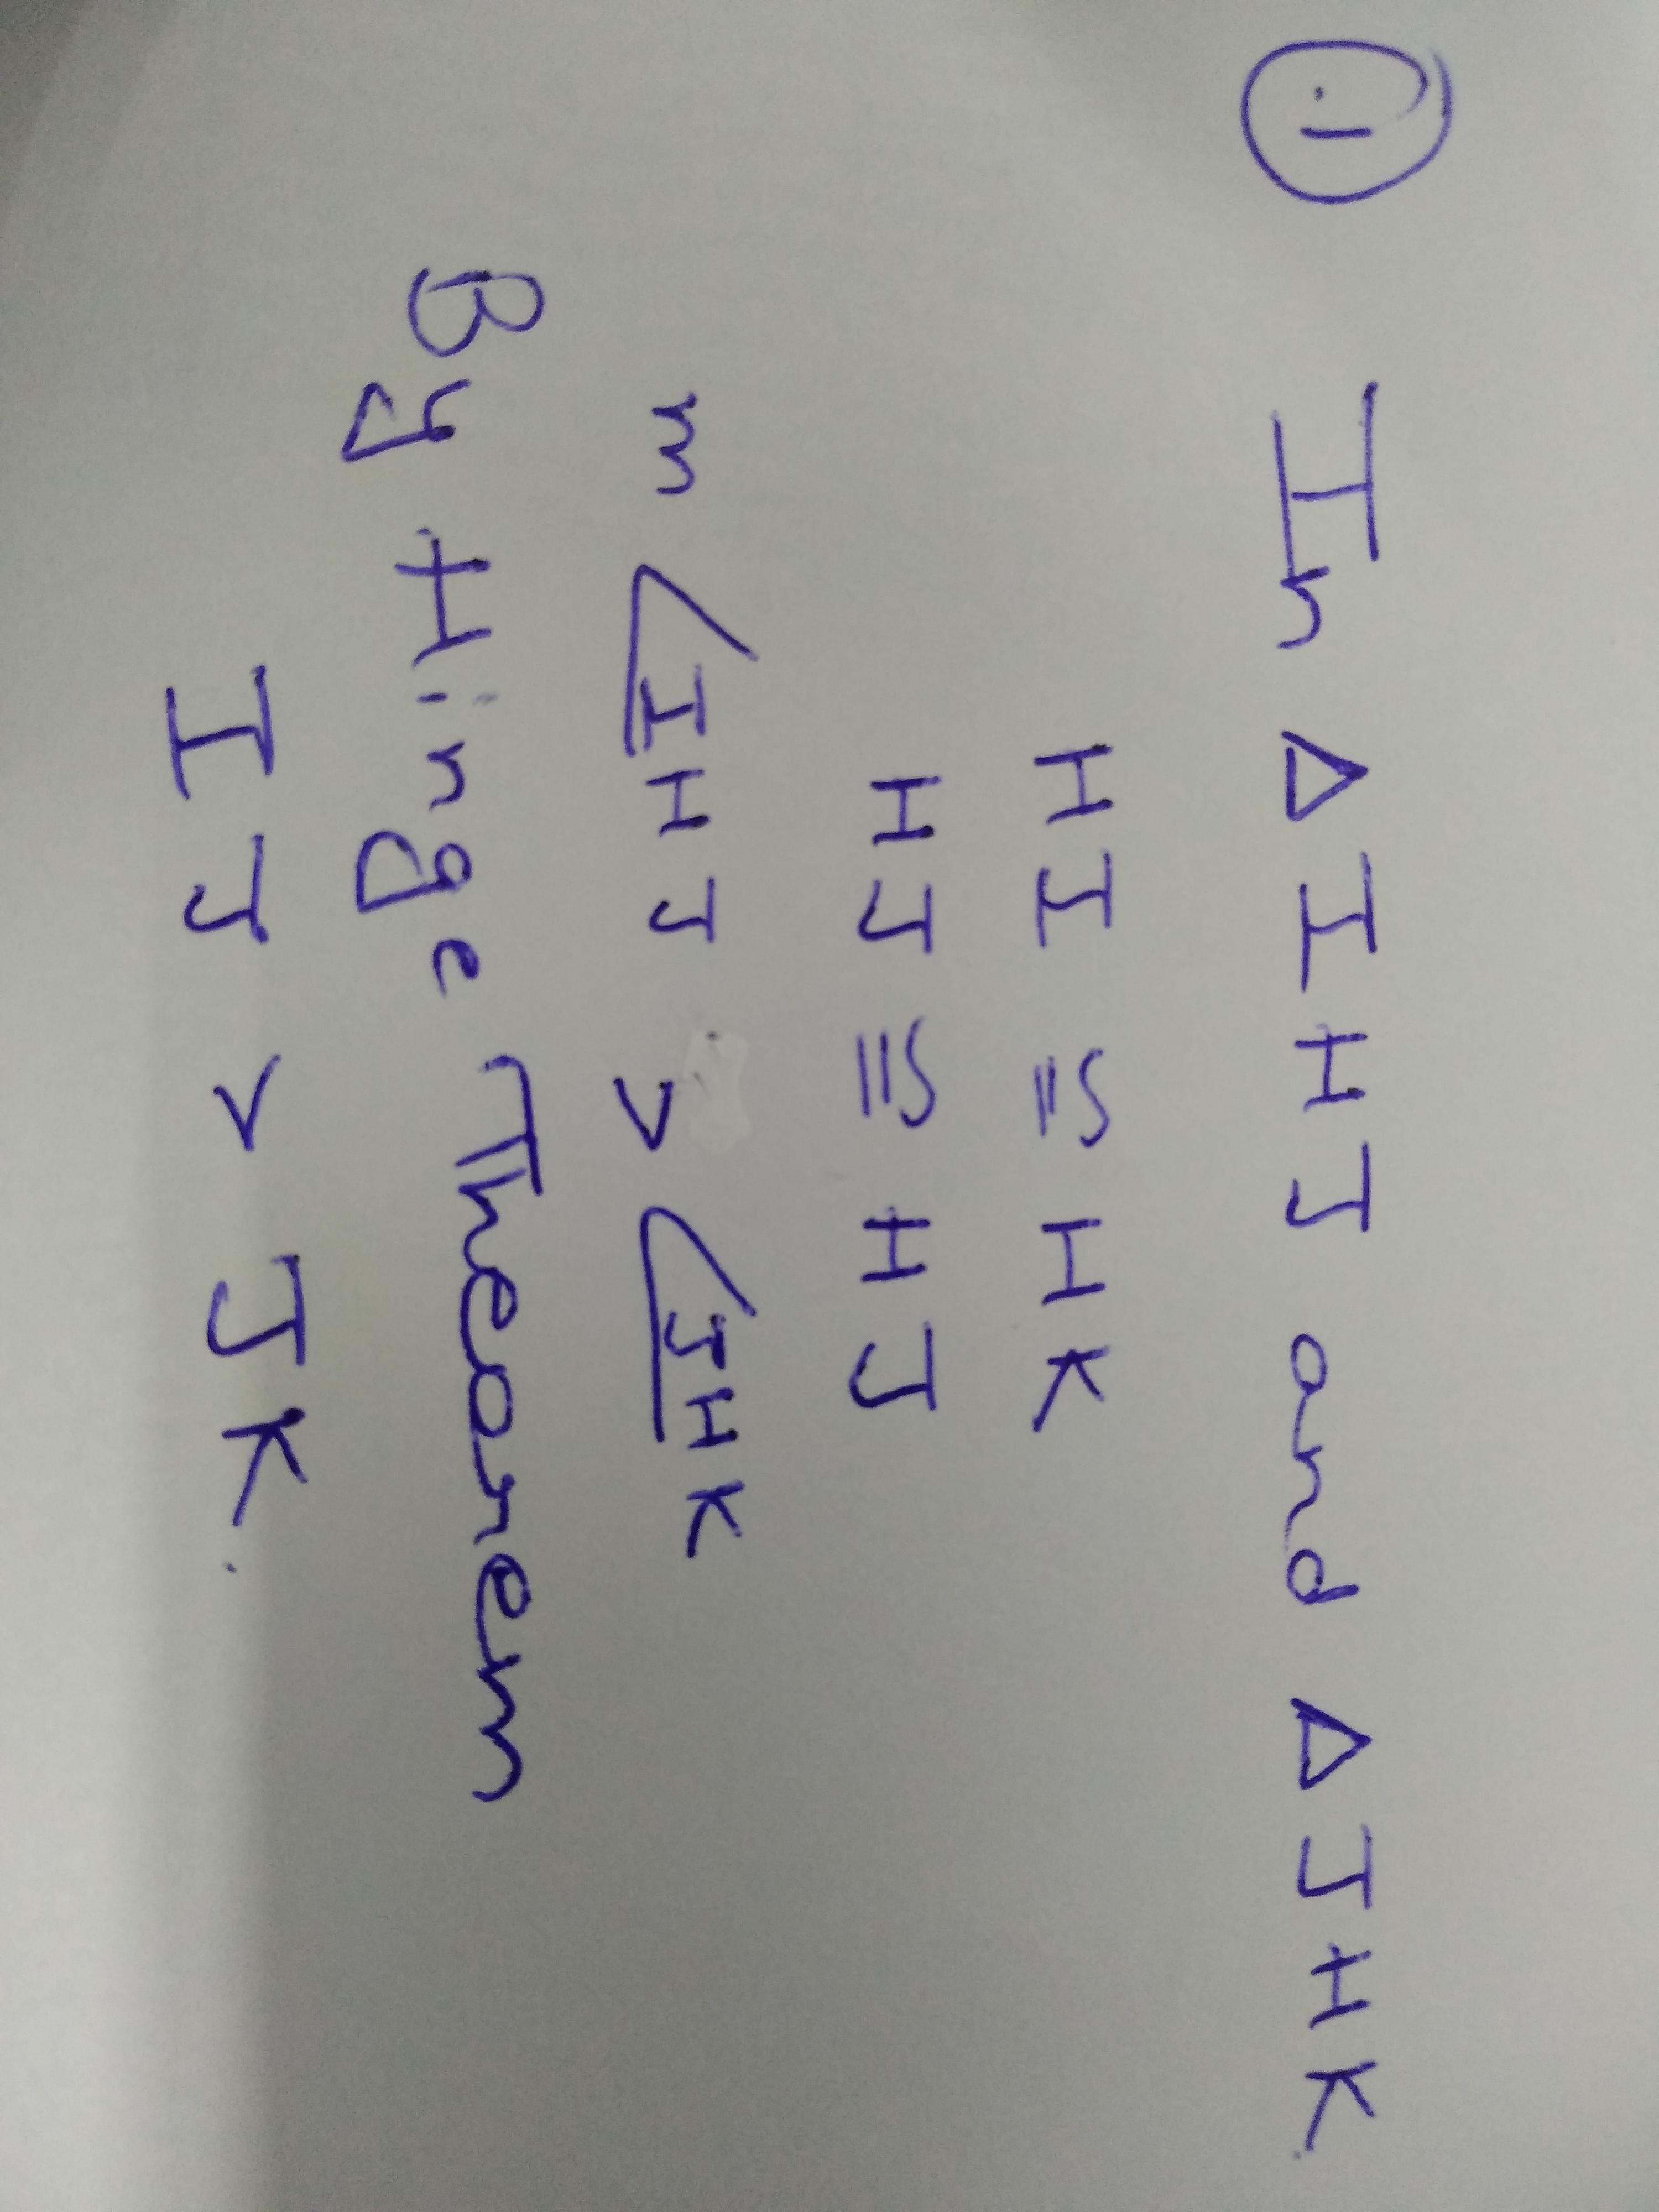 .1 In Δ IHJ and Δ JHK.
HI ≅ HK
HJ ≅ HJ
m ∠IHJ > ∠JHK
By Hinge Theorem
IJ > JK.